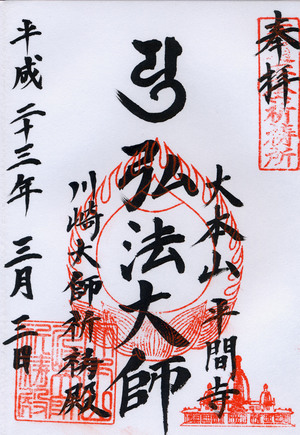 奉拝
大本山 平間寺
弘法大師
川崎大師祈祷殿
平成二十三年 三月 三日